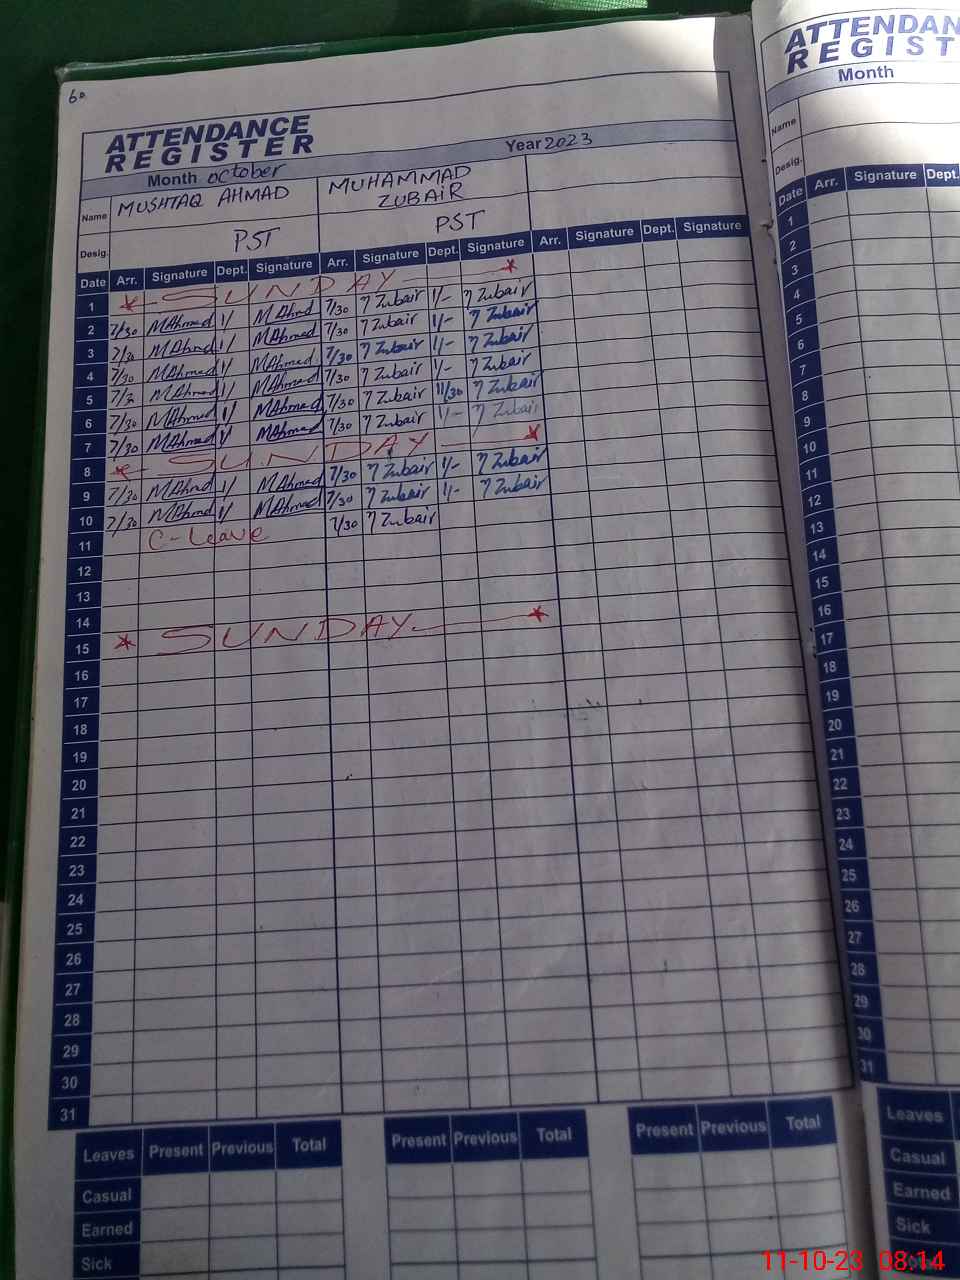 60
ATTENDANCE
REGISTER
Month October Year 2023
Name MUSHTAQ AHMAD MUHAMMAD ZUBAIR
Desig. PST PST
Date Arr. Signature Dept. Signature Arr. Signature Dept. Signature Arr. Signature Dept. Signature
1 SUNDAY
2 7/30 MAhmad 1/ MAhmad 7/30 Zubair 1/- Zubair
3 7/30 MAhmad 1/ MAhmad 7/30 Zubair 1/- Zubair
4 7/30 MAhmad 1/ MAhmad 7/30 Zubair 1/- Zubair
5 7/30 MAhmad 1/ MAhmad 7/30 Zubair 1/- Zubair
6 7/30 MAhmad 1/ MAhmad 7/30 Zubair 11/30 Zubair
7 7/30 MAhmad 1/ MAhmad 7/30 Zubair 1/- Zubair
8 SUNDAY
9 7/30 MAhmad 1/ MAhmad 7/30 Zubair 1/- Zubair
10 7/30 MAhmad 1/ MAhmad 7/30 Zubair 1/- Zubair
11 C-Leave 7/30 Zubair
12
13
14
15 SUNDAY
16
17
18
19
20
21
22
23
24
25
26
27
28
29
30
31
Leaves Present Previous Total Present Previous Total Present Previous Total
Casual
Earned
Sick
ATTENDAN
REGIST
Month
Name
Desig.
Date Arr. Signature Dept.
1
2
3
4
5
6
7
8
9
10
11
12
13
14
15
16
17
18
19
20
21
22
23
24
25
26
27
28
29
30
31
Leaves
Casual
Earned
Sick
11-10-23 08:14